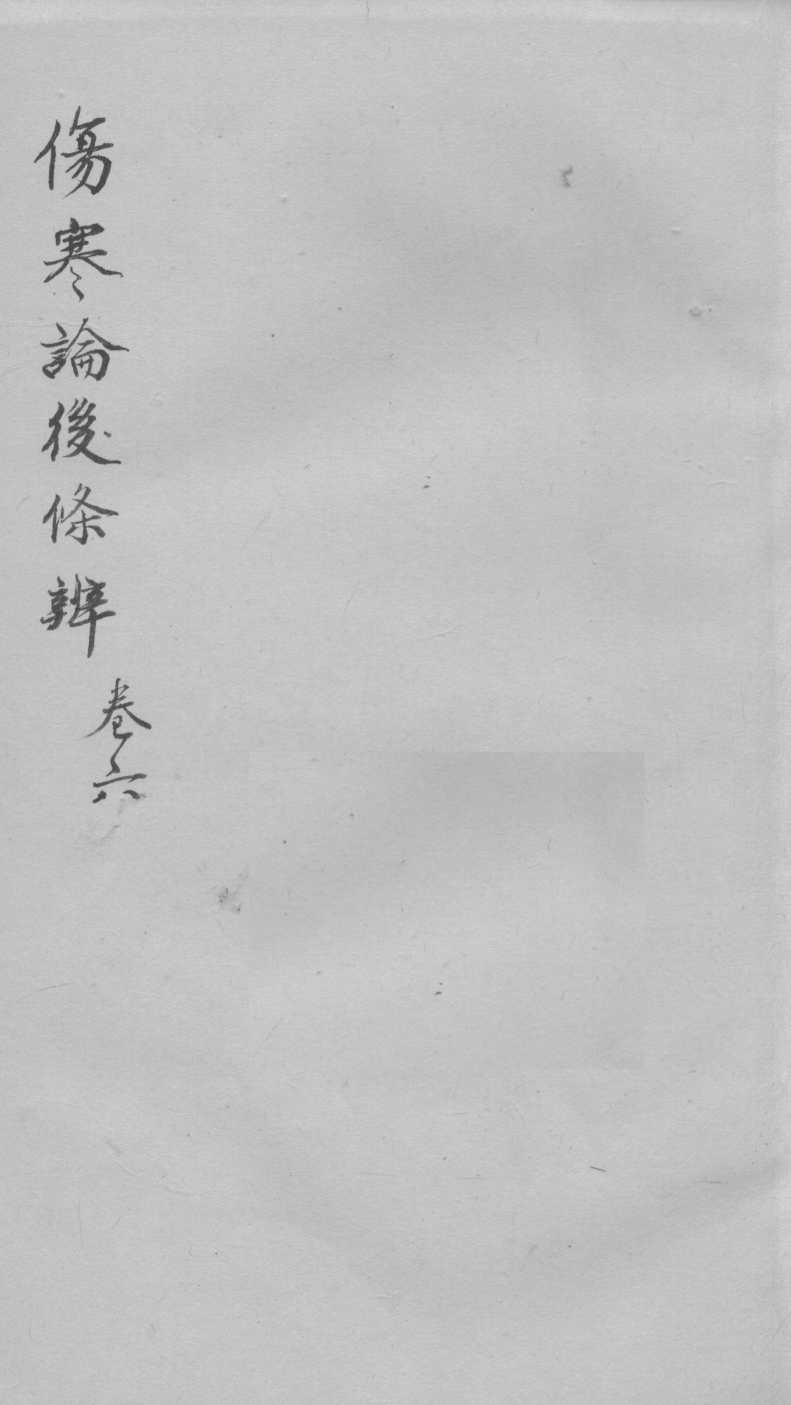 傷寒論後條辨
卷六